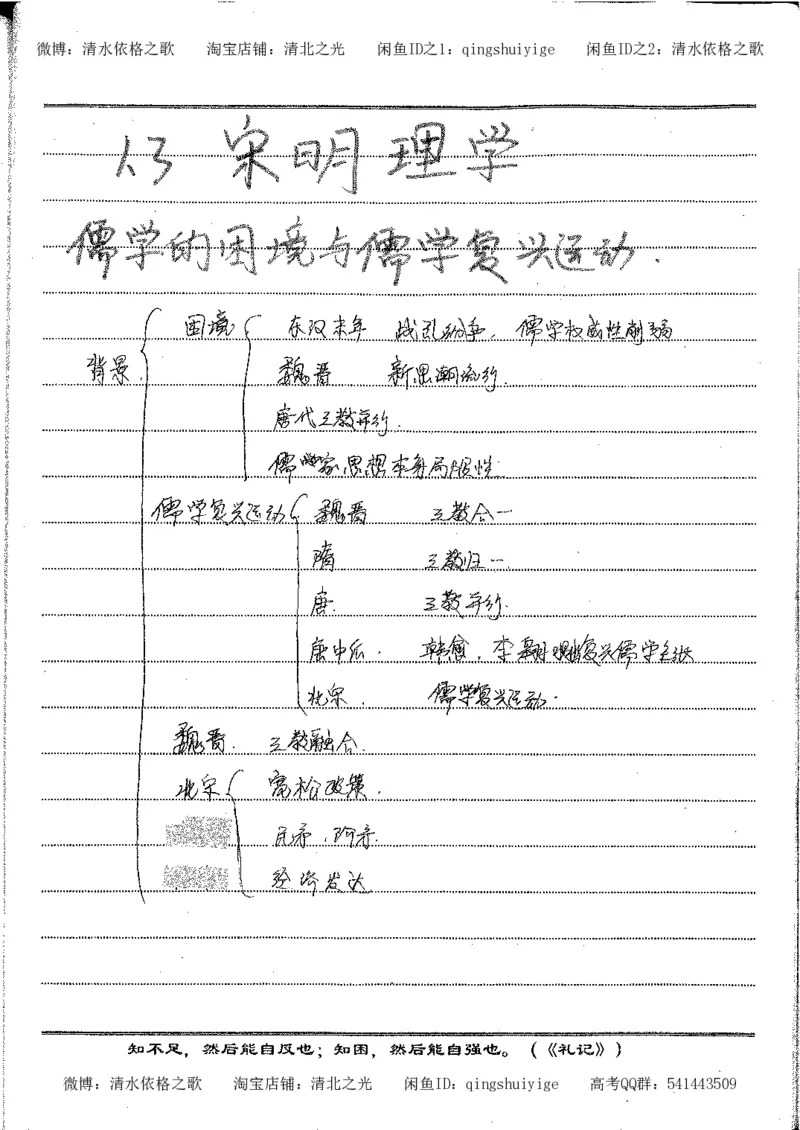 微博：清水依格之歌 淘宝店铺：清北之光 闲鱼ID之1：qingshuiyige 闲鱼ID之2：清水依格之歌
13 宋明理学
儒学的困境与儒学复兴运动.
背景
困境 东汉末年 战乱纷争，儒学权威性削弱
魏晋 新思潮流行.
唐代三教并行.
儒学家思想本身局限性
儒学复兴运动 魏晋 三教合一
隋 三教归一
唐. 三教并行.
唐中后. 韩愈，李翱 复兴儒学
北宋. 儒学复兴运动.
魏晋. 三教融合.
北宋 宽松政策.
民矛，阶矛.
经济发达
知不足，然后能自反也；知困，然后能自强也。（《礼记》）
微博：清水依格之歌 淘宝店铺：清北之光 闲鱼ID：qingshuiyige 高考QQ群：541443509